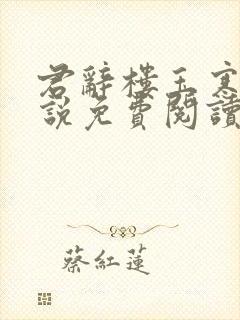 君辭樓玉寒
說免費閱讀
蔡紅蓮